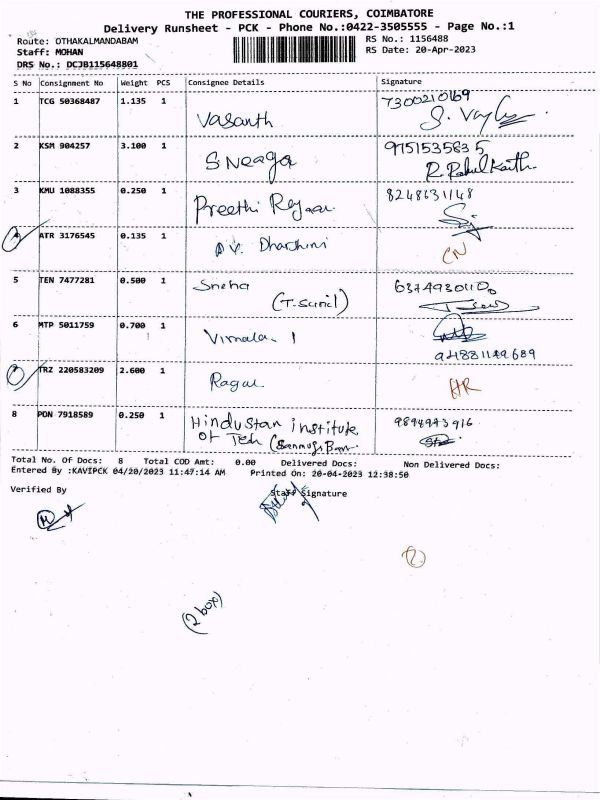 THE PROFESSIONAL COURIERS, COIMBATORE
Delivery Runsheet - PCK - Phone No.:0422-3505555 - Page No.:1
Route: OTHAKALMANDABAM
RS No.: 1156488
Staff: MOHAN
RS Date: 20-Apr-2023
DRS No.: DCJB115648801
S No Consignment No Weight PCS Consignee Details Signature
1 TCG 50368487 1.135 1 Vasanth 7300210169
2 KSM 904257 3.100 1 SNeaga 9751535835
3 KMU 1088355 0.250 1 Preethi 8248631148
4 ATR 3176545 0.135 1 D.V. Dharshini CN
5 TEN 7477281 0.500 1 Sneha
(T.Sunil)
6 MTP 5011759 0.700 1 Vimala. 1
7 TRZ 220583209 2.600 1 Ragul HR
8 PON 7918589 0.250 1 Hindustan institute
of Tech
Total No. Of Docs: 8 Total COD Amt: 0.00 Delivered Docs: Non Delivered Docs:
Entered By :KAVIPCK 04/20/2023 11:47:14 AM Printed On: 20-04-2023 12:38:50
Verified By Staff Signature
2
(2 box)